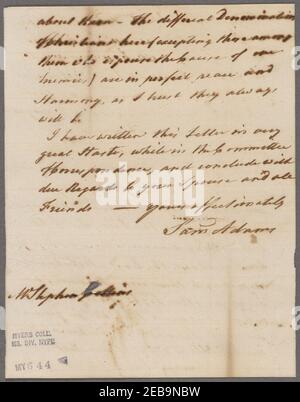 about them - The different Denominations
of Christians here (excepting those among
them who espouse the cause of our
Enemies) are in perfect peace and
Harmony, as I trust they always
will be
I have written this Letter in very
great Haste, while in the Committee
Correspondence, and conclude with
due Regards to your Spouse and all
Friends - yours affectionately
Sam Adams
Mr Stephen Collins
MYERS COLL.
MS. DIV. NYPL
MY644
alamy
Image ID: 2EB9NBW
www.alamy.com